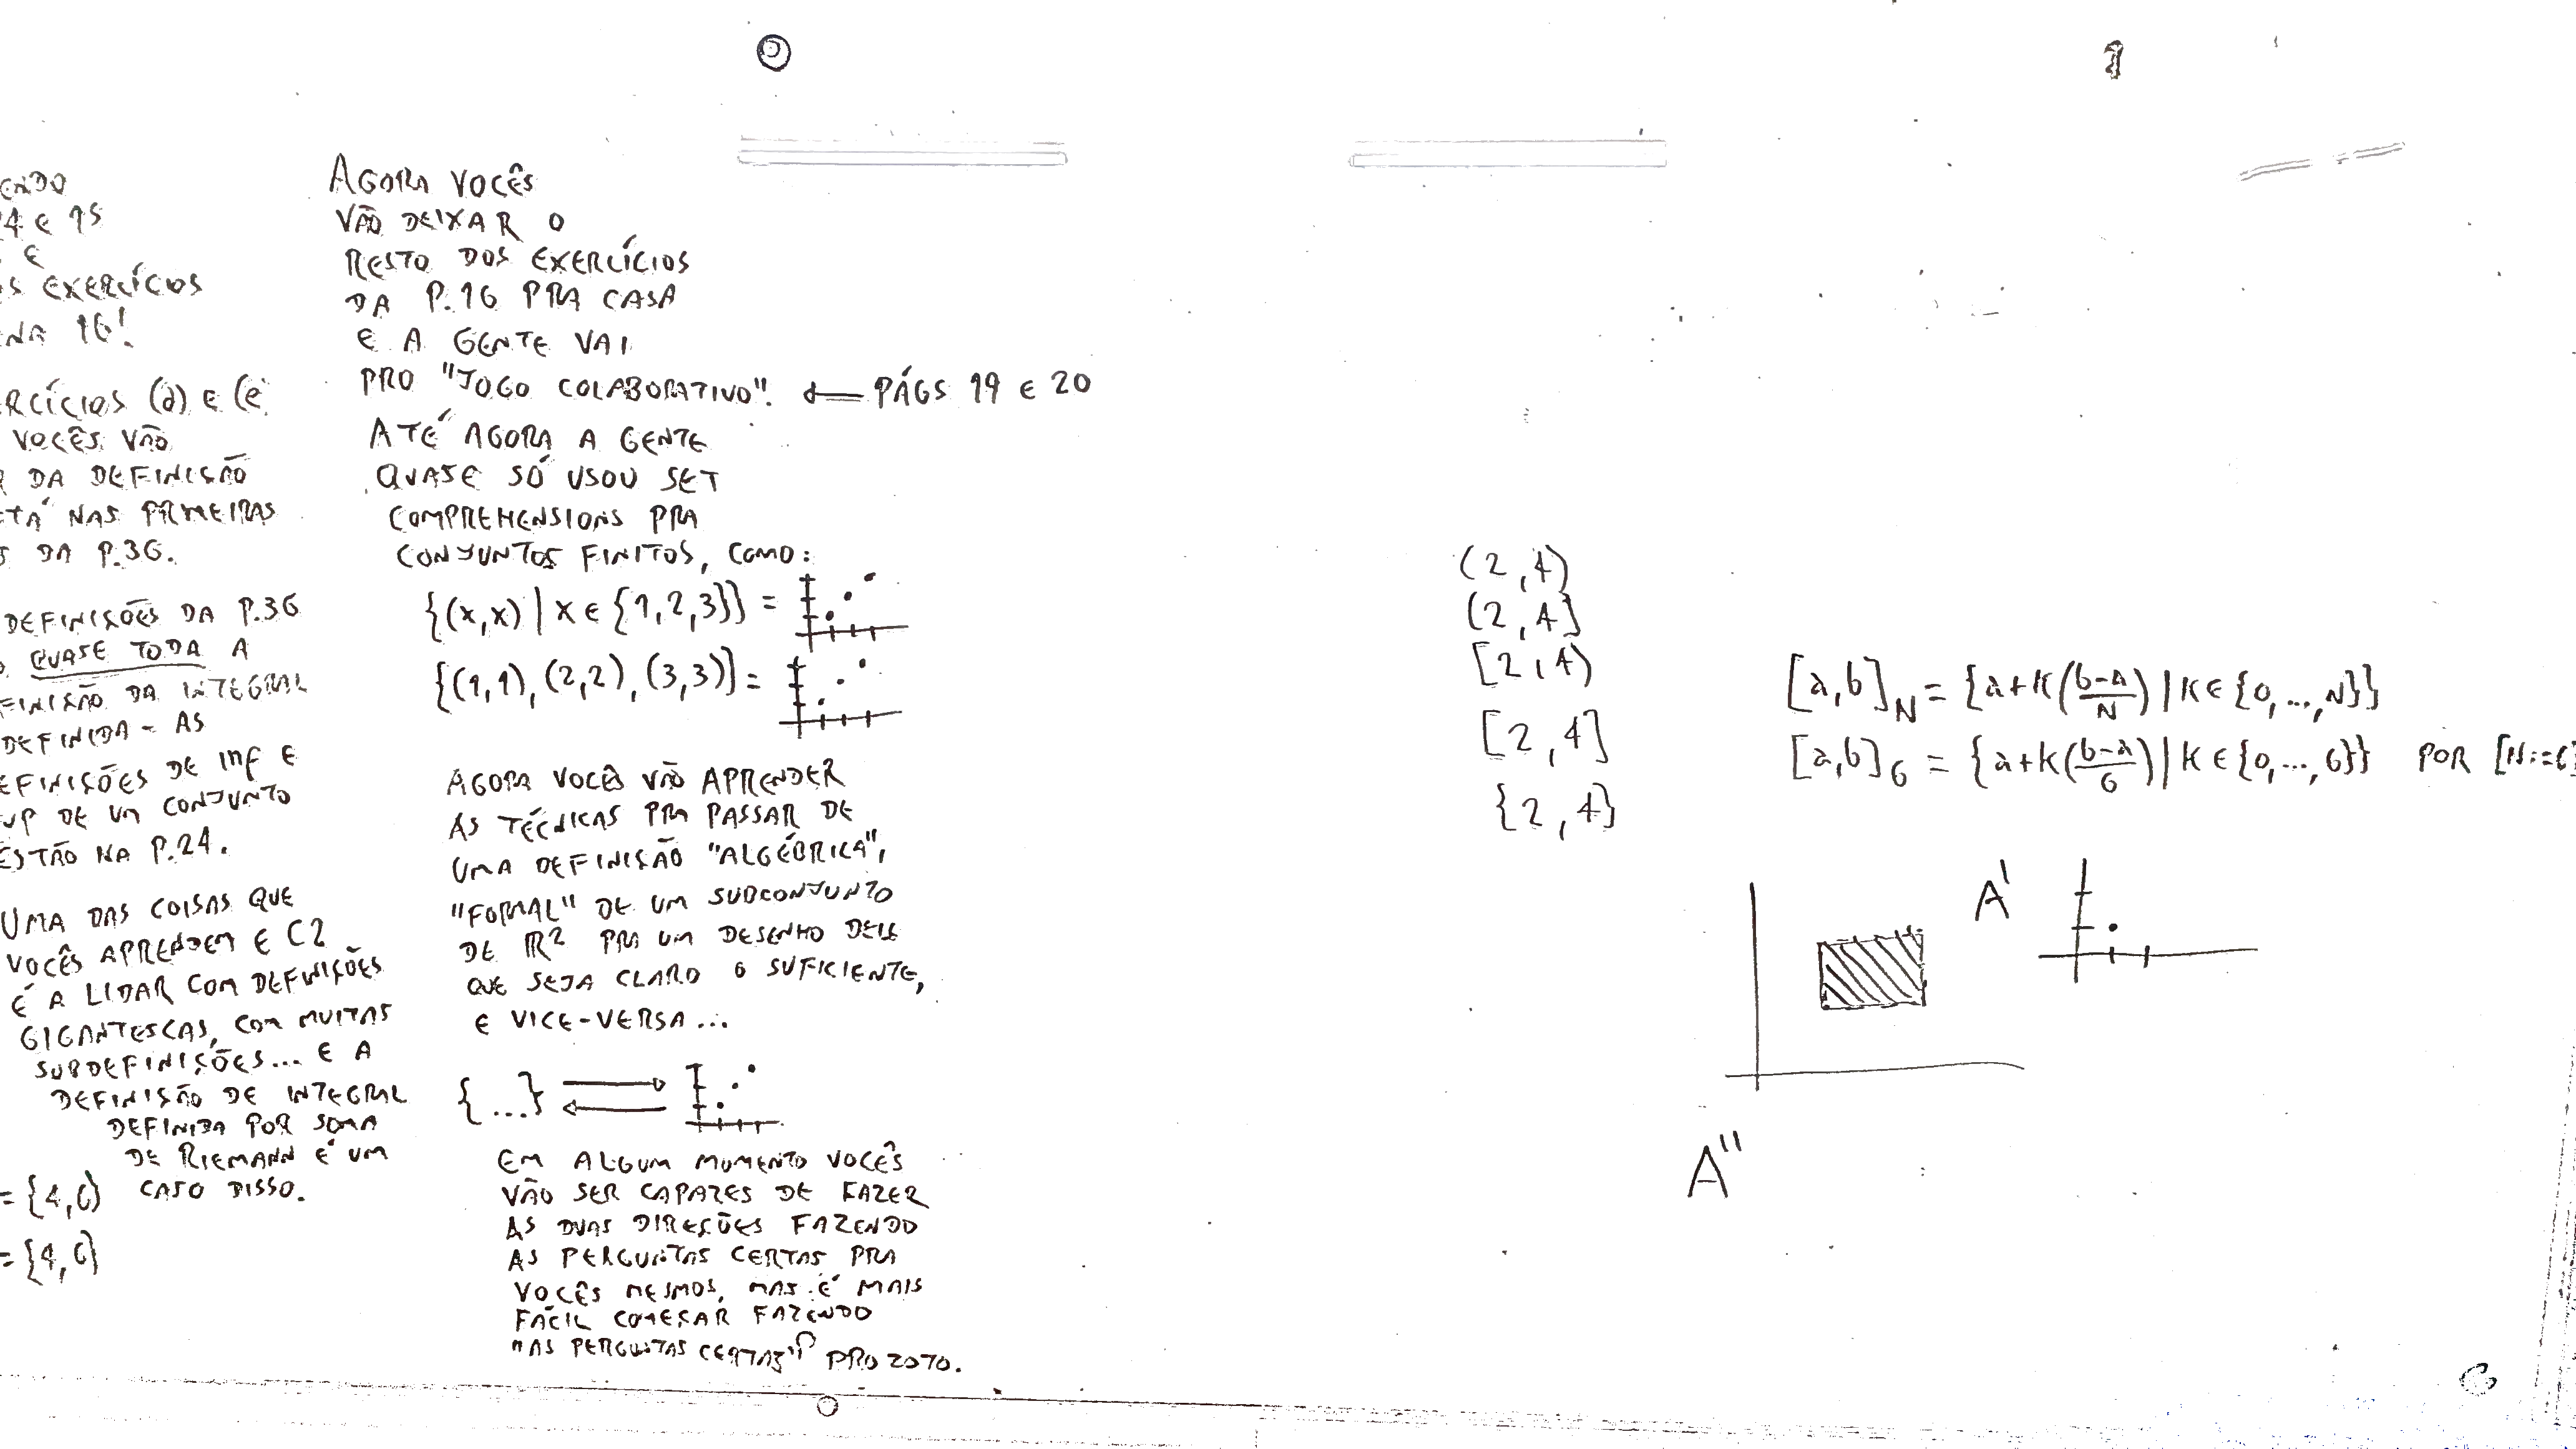 ENDO
4 E 15
E
S EXERCÍCIOS
NA 16!
RCÍCIOS (d) E (e
VOCÊS VÃO
R DA DEFINIÇÃO
TÁ NAS PRIMEIRAS
S DA P.36.
DEFINIÇÕES DA P.36
QUASE TODA A
FINIÇÃO DA INTEGRAL
DEFINIDA - AS
EFINIÇÕES DE INF E
UP DE UM CONJUNTO
ESTÃO NA P.24.
UMA DAS COISAS QUE
VOCÊS APRENDEM E C2
É A LIDAR COM DEFINIÇÕES
GIGANTESCAS, COM MUITAS
SUBDEFINIÇÕES... E A
DEFINIÇÃO DE INTEGRAL
DEFINIDA POR SOMA
DE RIEMANN É UM
CASO DISSO.
= {4,6}
= {4,6}
AGORA VOCÊS
VÃO DEIXAR O
RESTO DOS EXERCÍCIOS
DA P.16 PRA CASA
E A GENTE VAI
PRO "JOGO COLABORATIVO". ← PÁGS 19 E 20
ATÉ AGORA A GENTE
QUASE SÓ USOU SET
COMPREHENSIONS PRA
CONJUNTOS FINITOS, COMO:
{(x,x) | x ∈ {1,2,3}} =
{(1,1), (2,2), (3,3)} =
AGORA VOCÊS VÃO APRENDER
AS TÉCNICAS PRA PASSAR DE
UMA DEFINIÇÃO "ALGÉBRICA",
"FORMAL" DE UM SUBCONJUNTO
DE ℝ² PRA UM DESENHO DELE
QUE SEJA CLARO O SUFICIENTE,
E VICE-VERSA...
{...}
EM ALGUM MOMENTO VOCÊS
VÃO SER CAPAZES DE FAZER
AS DUAS DIREÇÕES FAZENDO
AS PERGUNTAS CERTAS PRA
VOCÊS MESMOS, MAS É MAIS
FÁCIL COMEÇAR FAZENDO
"AS PERGUNTAS CERTAS" PRO
(2,4)
(2,4]
[2,4)
[2,4]
{2,4}
[a,b]_N = {a+k(\frac{b-a}{N}) | k ∈ {0,...,N}}
[a,b]_6 = {a+k(\frac{b-a}{6}) | k ∈ {0,...,6}} POR [N:=6]
A'
A''